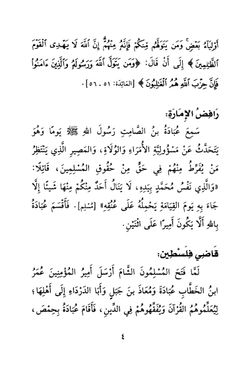 أَوْلِيَاءُ بَعْضٍ وَمَن يَتَوَلَّهُم مِّنكُمْ فَإِنَّهُ مِنْهُمْ إِنَّ اللَّهَ لَا يَهْدِى الْقَوْمَ
الظَّالِمِينَ﴾ إِلَى أَنْ قَالَ: ﴿وَمَن يَتَوَلَّ اللَّهَ وَرَسُولَهُ وَالَّذِينَ ءَامَنُواْ
فَإِنَّ حِزْبَ اللَّهِ هُمُ الْغَالِبُونَ﴾ [المائدة: ٥١ ـ ٥٦].
رَافِضُ الإِمَارَةِ:
سَمِعَ عُبَادَةُ بنُ الصَّامِتِ رَسُولَ اللهِ ﷺ يَوْمًا وَهُوَ
يَتَحَدَّثُ عَنْ مَسْؤُولِيَّةِ الأُمَرَاءِ وَالوُلَاةِ، وَالمَصِيرِ الَّذِي يَنْتَظِرُ
مَنْ يُفَرِّطُ مِنْهُمْ فِي حَقٍّ مِنْ حُقُوقِ المُسْلِمِينَ، قَائِلًا:
«وَالَّذِي نَفْسُ مُحَمَّدٍ بِيَدِهِ، لَا يَنَالُ أَحَدٌ مِنْكُمْ مِنْهَا شَيْئًا إِلَّا
جَاءَ بِهِ يَوْمَ القِيَامَةِ يَحْمِلُهُ عَلَى عُنُقِهِ» [مُسْلِم]. فَأَقْسَمَ عُبَادَةُ
بِاللهِ أَلَّا يَكُونَ أَمِيرًا عَلَى اثْنَيْنِ.
قَاضِي فِلَسْطِينَ:
لَمَّا فَتَحَ المُسْلِمُونَ الشَّامَ أَرْسَلَ أَمِيرُ المُؤْمِنِينَ عُمَرُ
ابنُ الخَطَّابِ عُبَادَةَ وَمُعَاذَ بنَ جَبَلٍ وَأَبَا الدَّرْدَاءِ إِلَى أَهْلِهَا؛
لِيُعَلِّمُوهُمُ القُرْآنَ وَيُفَقِّهُوهُمْ فِي الدِّينِ، فَأَقَامَ عُبَادَةُ بِحِمْصَ،
٤